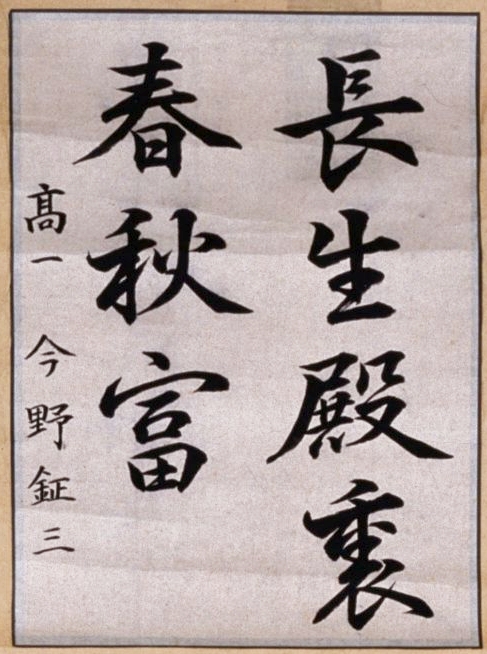 長生殿裏
春秋富
髙一 今野鉦三